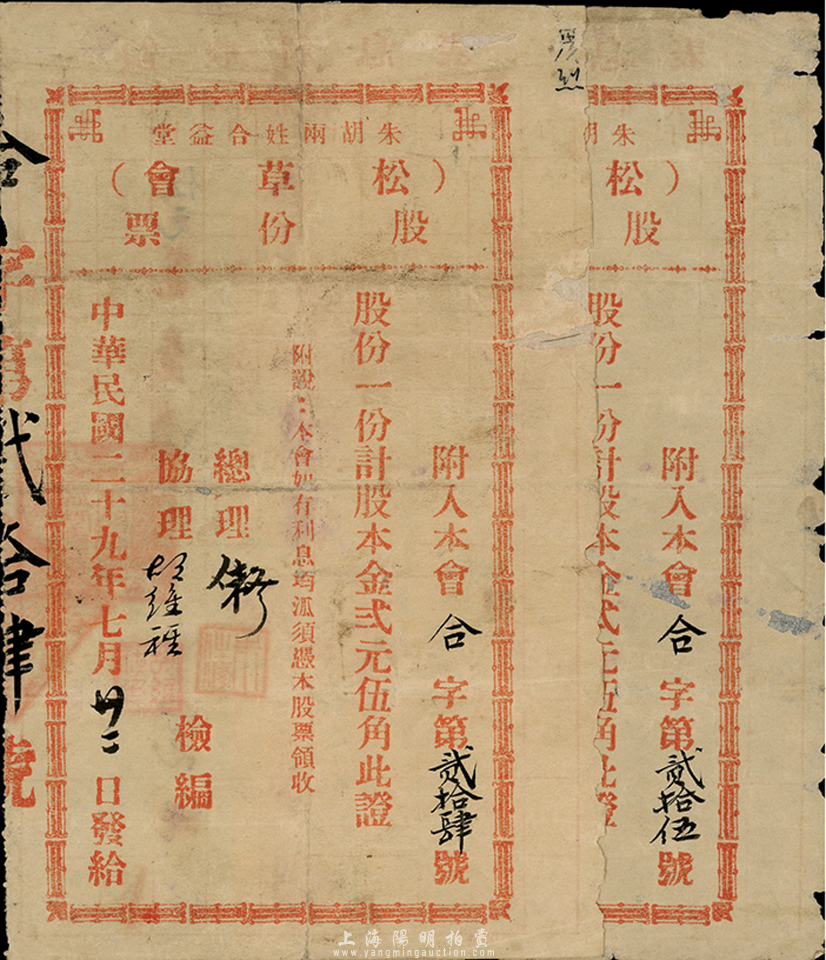 朱胡兩姓合益堂
（松草會）
股份票
附入本會合字第貳拾肆號
股份一份計股本金弍元伍角此證
附說：本會如有利息須憑本股票領收
總理
協理 胡維
檢編
中華民國二十九年七月廿二日發給
朱胡
（松
股
附入本會合字第貳拾伍號
股份一份計股本金弍元伍角此證
合字第弍拾肆號
上海陽明拍賣
www.yangmingauction.com